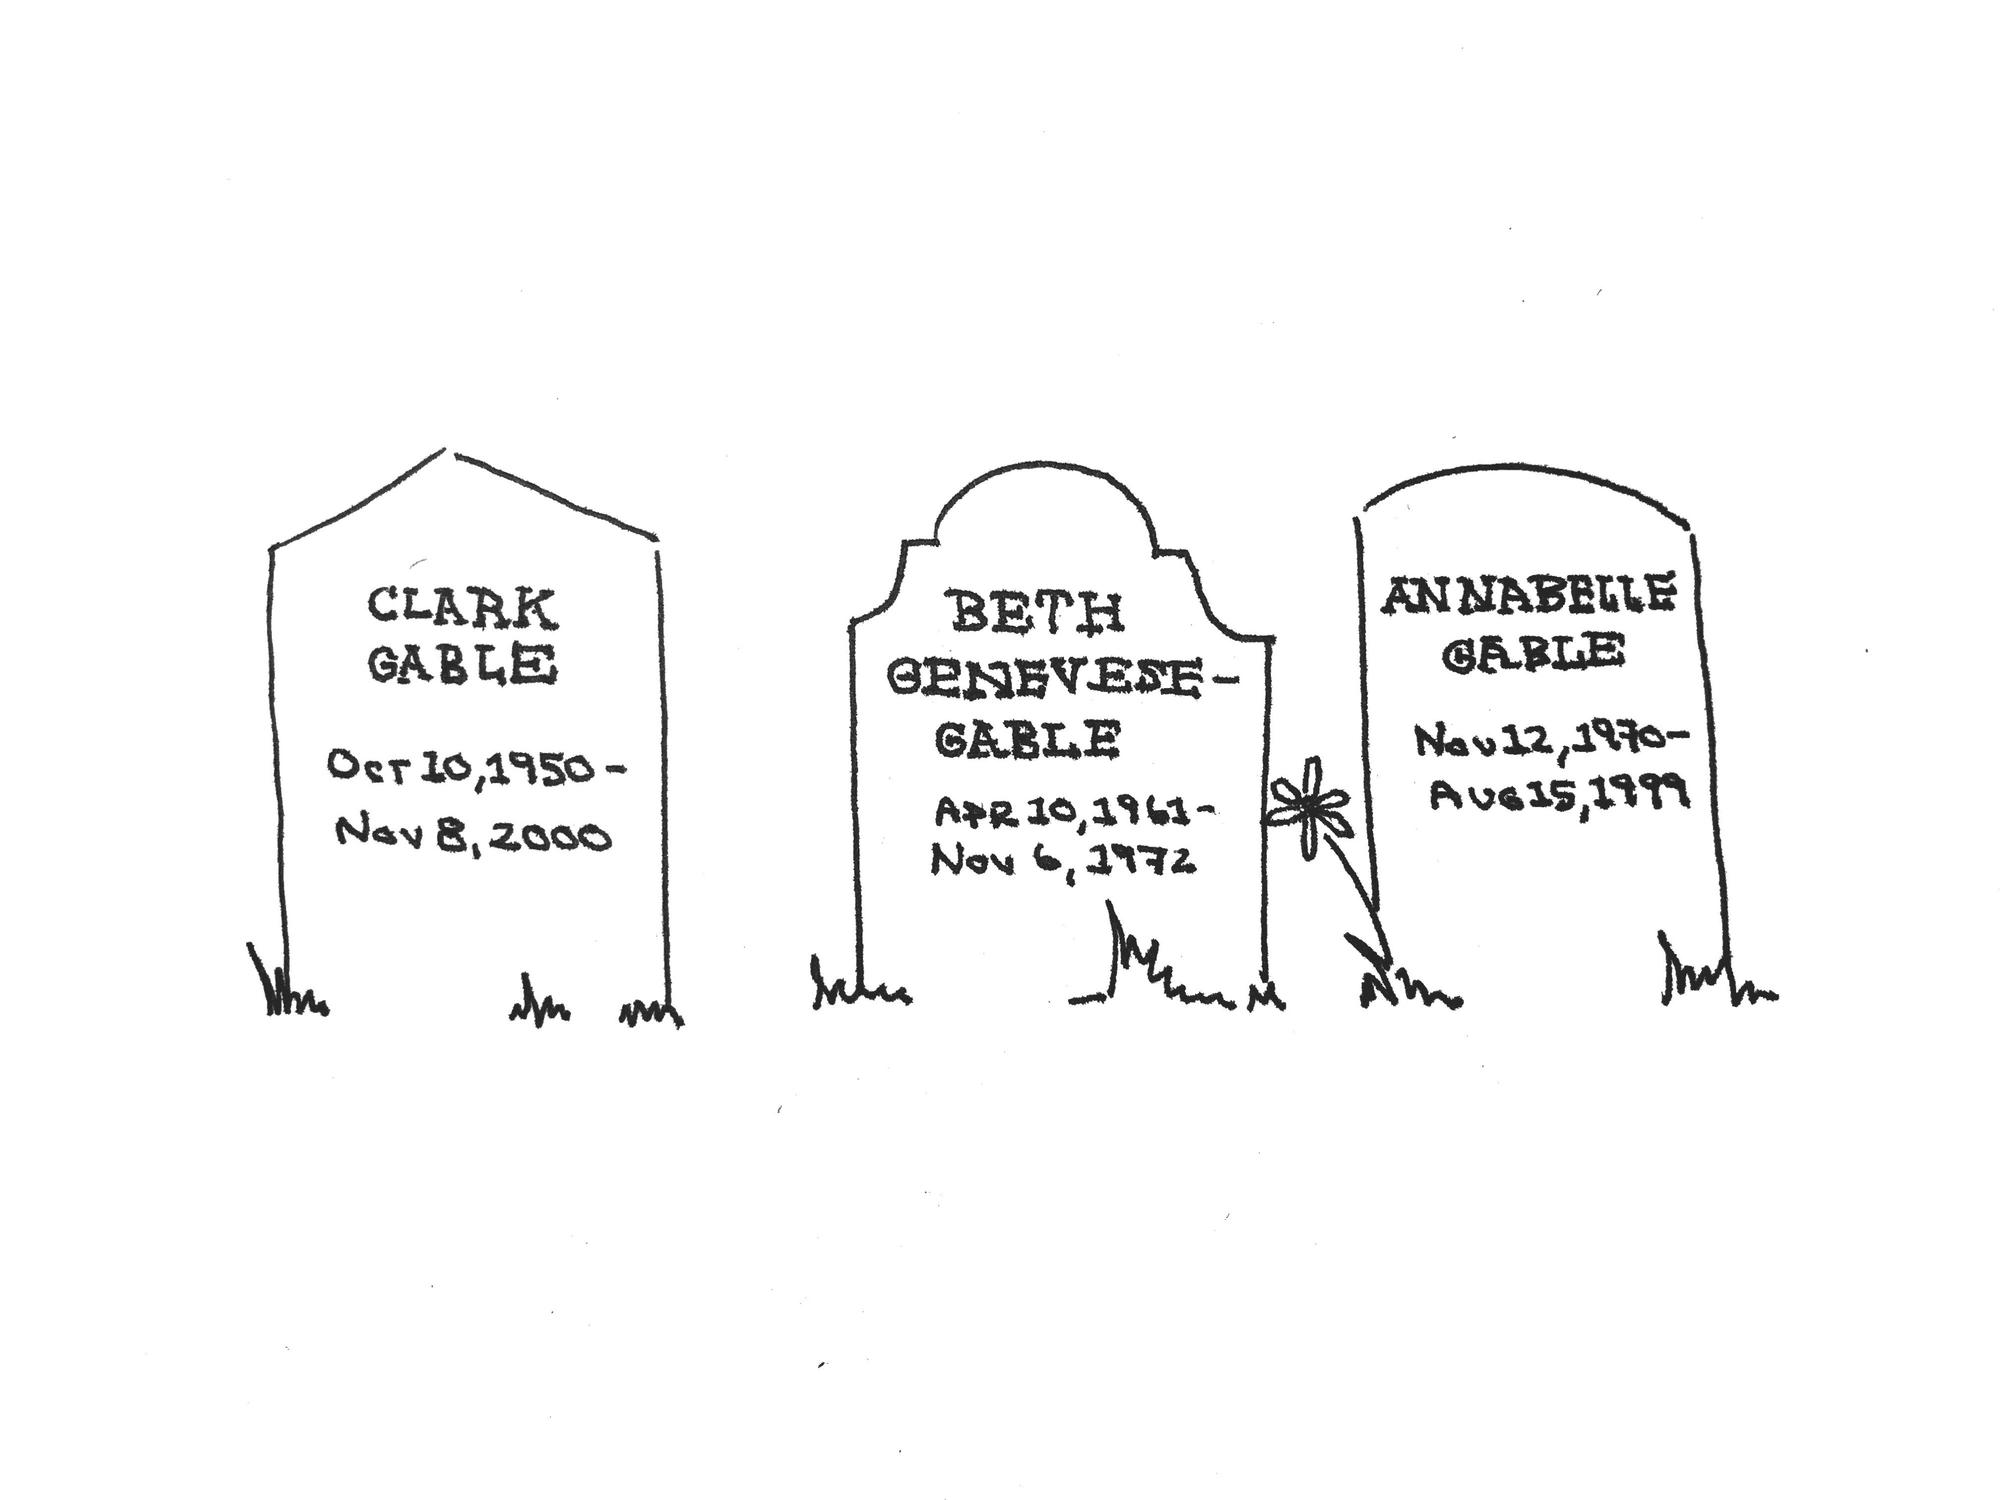 CLARK
GABLE
Oct 10, 1950 -
Nov 8, 2000
BETH
GENEVESE-
GABLE
APR 10, 1961-
Nov 6, 1972
ANNABELLE
GABLE
Nov 12, 1970-
AUG 15, 1999